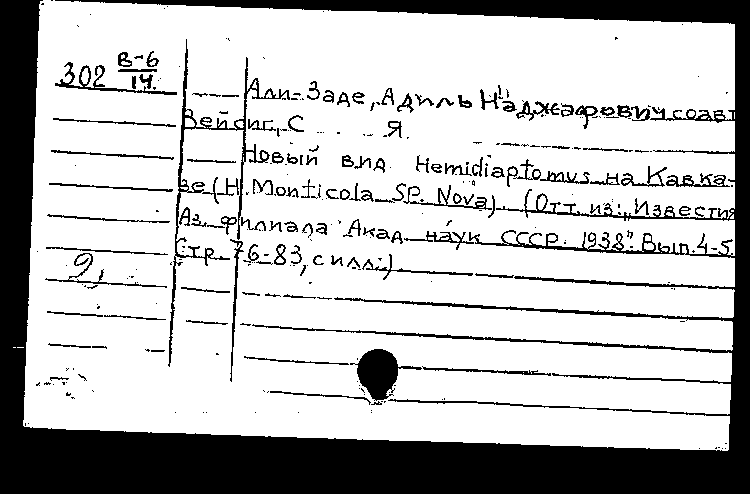 302 В-6
14.
Али-Заде, Адиль Наджафович соавт
Вейсиг, С Я.
Новый вид Hemidiaptomus на Кавка-
зе (H. Monticola SP. Nova). (Отт. из: „Известия
Аз. филиала Акад. наук СССР. 1938" Вып. 4-5.
Стр. 76-83, с илл.)
2,